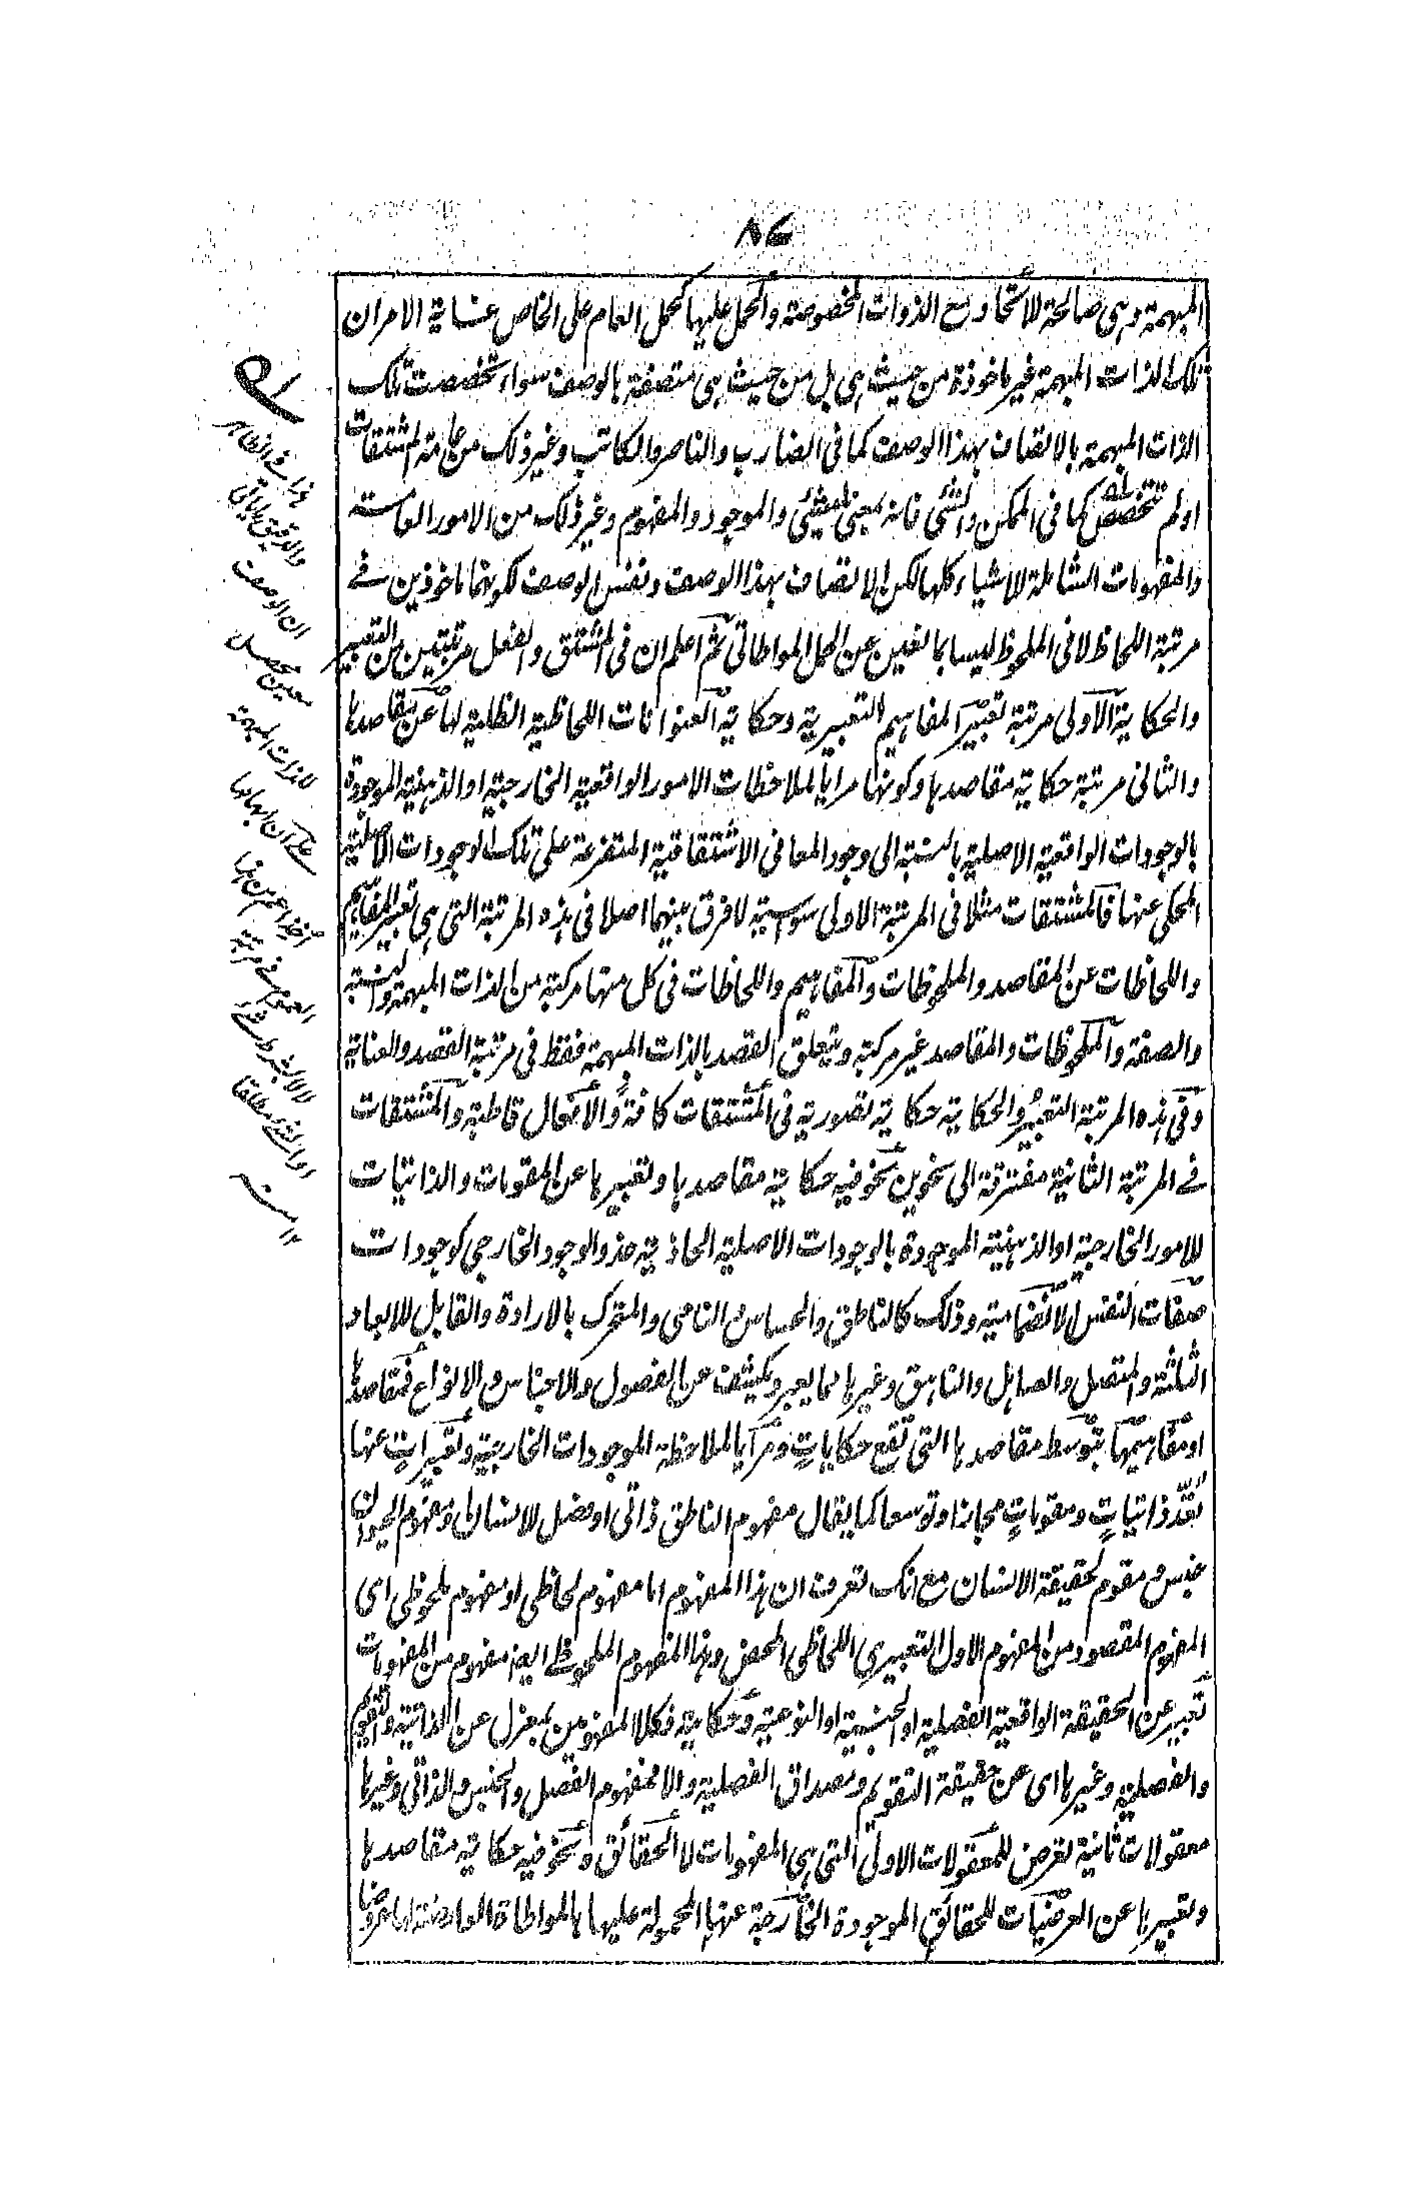 ٨٦
المبهمة وهى صالحة للاتحاد مع الذوات المخصوصة والحمل عليها كحمل العام على الخاص غاية الامر ان
تلك الذات المبهمة غير ماخوذة من حيث هى بل من حيث هى متصفة بالوصف سواء تخصصت تلك
الذات المبهمة بالاتصاف بهذا الوصف كما فى الضارب والناصر والكاتب وغير ذلك من عامة المشتقات
او لم تتخصص كما فى الممكن والشئ فانه بمعنى المشيئ والموجود والمفهوم وغير ذلك من الامور العامة
والمفهومات الشاملة للاشياء كلها لكن الاتصاف بهذا الوصف ونفس الوصف لكونهما ماخوذين فے
مرتبة اللحاظ لا فى الملحوظ ليسا بمانعين عن الحمل المواطاتى ثم اعلم ان فى المشتق والفعل مرتبتين من التعبير
والحكاية الاولى مرتبة تعبير المفاهيم التعبيرية وحكاية العنوانات اللحاظية الظلية لها عن مقاصدها
والثانى مرتبة حكاية مقاصدها وكونها مرايا لملاحظات الامور الواقعية الخارجية او الذهنية الموجودة
بالوجودات الواقعية الاصلية بالنسبة الى وجود المعانى الاشتقاقية المتفرعة على تلك الوجودات الاصلية
المحكى عنها فالمشتقات مثلا فى المرتبة الاولى سواسية لا فرق بينهما اصلا فى هذه المرتبة التى هى تعبير المفاهيم
واللحاظات عن المقاصد والملحوظات والمفاهيم واللحاظات فى كل منها مركبة من الذات المبهمة والنسبة
والصفة والملحوظات والمقاصد غير مركبة ويتعلق القصد بالذات المبهمة فقط فى مرتبة القصد والعناية
وفى هذه المرتبة التعبير والحكاية حكاية تصورية فى المشتقات كافة والافعال قاطبة والمشتقات
فے المرتبة الثانية مفترقة الى نحوين نحو فيه حكاية مقاصدها وتعبيرها عن المقومات والذاتيات
للامور الخارجية او الذهنية الموجودة بالوجودات الاصلية الحاذية حذو الوجود الخارجى كوجودات
صفات النفس الانضمامية وذلك كالناطق والحساس والنامى والمتحرك بالارادة والقابل للابعاد
الثلثة والمتصل والصاهل والناهق وغيرها مما يعبر ويكشف عن الفصول والاجناس والانواع فمقاصدها
او مفاهيمها بتوسط مقاصدها التى تقع حكايات ومرايا لملاحظة الموجودات الخارجية وتعبيرات عنها
تعد ذاتيات ومقومات مجازا وتوسعا كما يقال مفهوم الناطق ذاتى او فصل للانسان او مفهوم الحيوان
جنس ومقوم لحقيقة الانسان مع انك تعرف ان هذا المفهوم اما مفهوم لحاظى او مفهوم ملحوظى اى
المفهوم المقصود من المفهوم الاول التعبيرى اللحاظى المحض وهذا المفهوم الملحوظے ايضا مفهوم من المفهومات
تعبير عن الحقيقة الواقعية الفصلية او الجنسية او النوعية وحكاية فكلا المفهومين بمعزل عن الذاتية والتقويم
والفصلية وغيرها اى عن حقيقة التقويم ومصداق الفصلية والا فمفهوم الفصل والجنس والذاتى وغيرها
معقولات ثانية تعرض للمعقولات الاولى التى هى المفهومات لا الحقائق ونحو فيه حكاية مقاصدها
وتعبيرها عن العرضيات للحقائق الموجودة الخارجة عنها المحمولة عليها بالمواطاة العارضة لها عروضا
هذا فے الظاهر
ان الوصف
معين محصل
للذات المبهمة
العموم فے مرتبة
او الشے مطلقا
١٢ منه